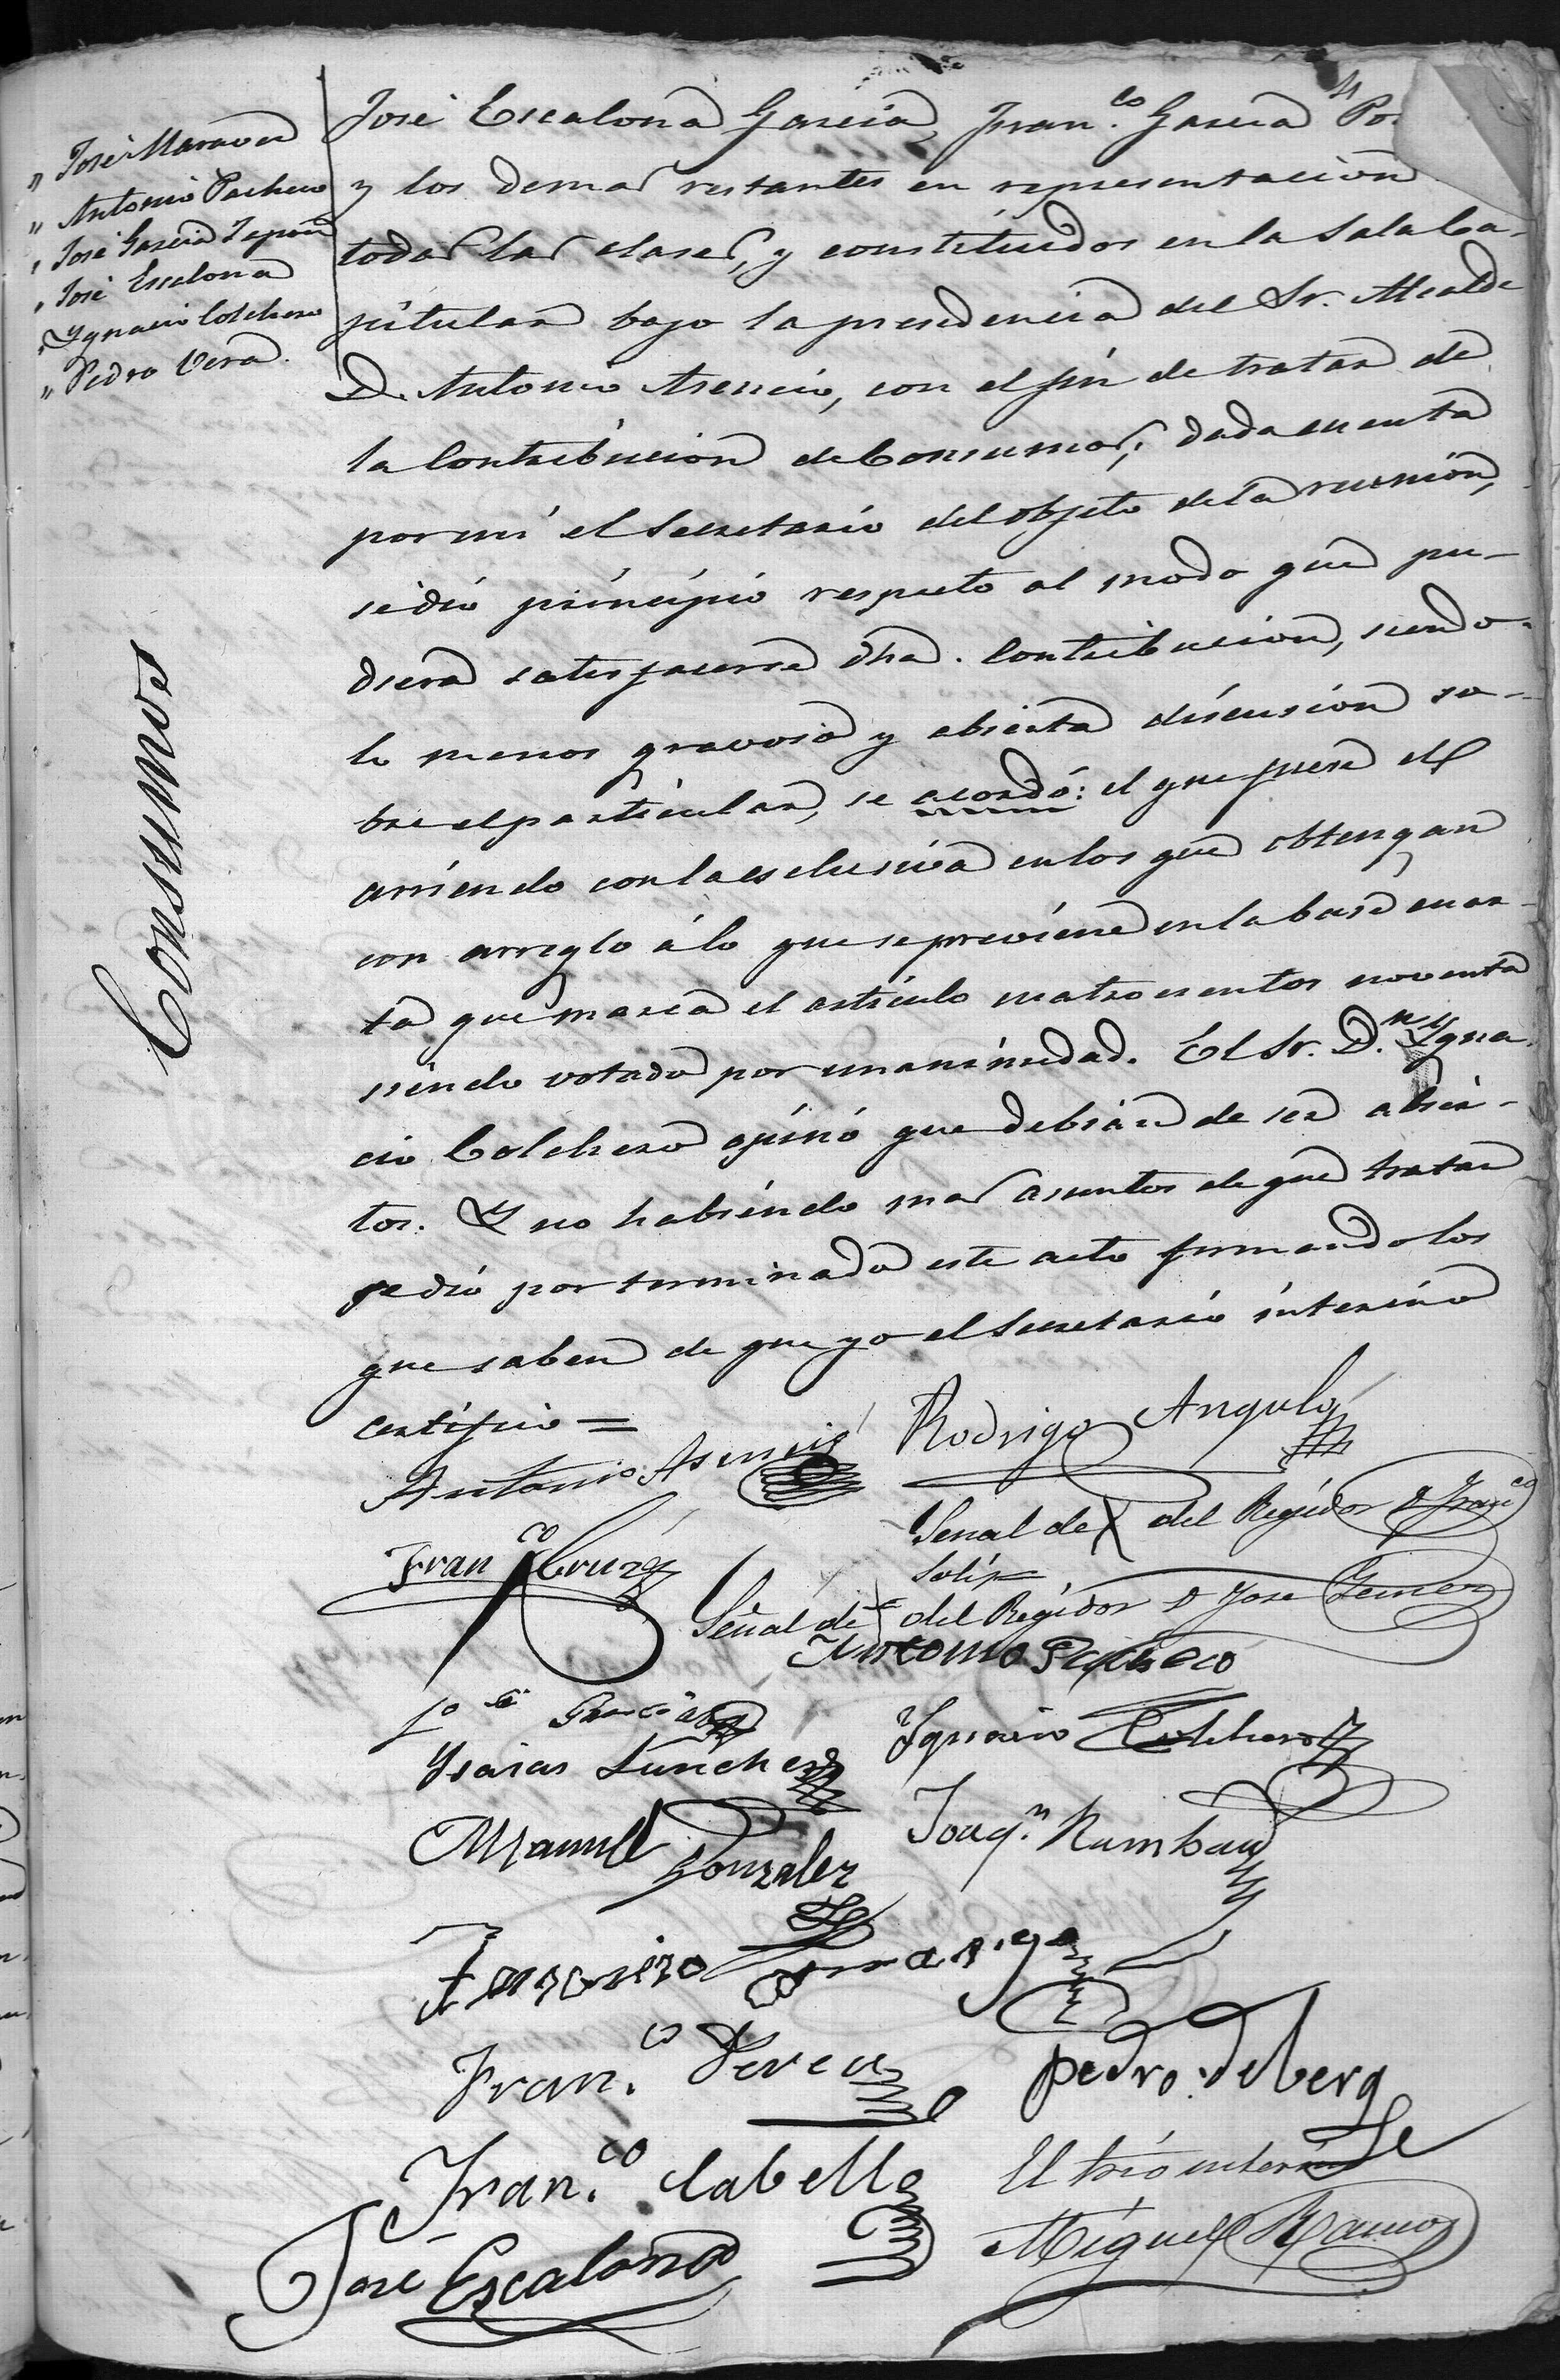 " José Maraver
" Antonio Pacheco
" José Garcia
" José Escalona
" Ygnacio Colchero
" Pedro Vera.
Consumos
José Escalona Garcia, Fran.co Garcia
y los demas restantes en representacion
todas las clases, y constituidos en la Sala Ca-
pitular bajo la presidencia del Sr. Alcalde
D. Antonio Asencio, con el fin de tratar de
la Contribucion de Consumos; dada cuenta
por mi el Secretario del objeto de la reunion,
se dio principio respecto al modo que pu-
diera satisfacerse dha. Contribucion, siendo
lo menos gravosa y abierta discusion so-
bre el particular, se acordó: el que fuera el
arriendo con la esclusiva en los que obtengan
con arreglo á lo que se previene en la base cuar-
ta que marca el articulo cuatrocientos noventa
siendo votado por unanimidad. El Sr. D.n Ygna-
cio Colchero opinó que debian de ser abier-
tos. Y no habiendo mas asuntos de que tratar
se dió por terminado este acto firmandolos
que saben de que yo el Secretario interino
certifico =
Antonio Asencio
Rodrigo Angulo
Fran.co Cruz
Señal de X del Regidor D Fran.co
Solis
Señal de + del Regidor D Jose
Antonio Pacheco
José Garcia
Ygnacio Colchero
Ysaias Sanchez
Manuel Gonzalez
Joaq.n Rumbau
Fran.co Perea
pedro de bera
Fran.co Cabello
El Srio interino
José Escalona
Miguel Ramos